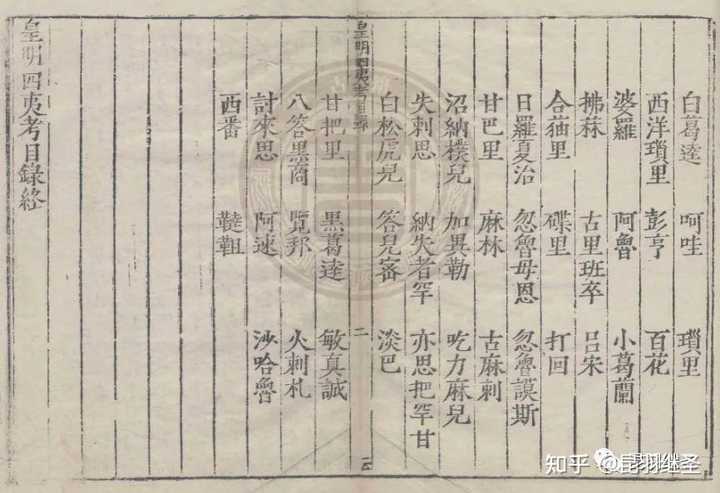 白葛達 呵哇 瑣里
西洋瑣里 彭亨 百花
婆羅 阿魯 小葛蘭
拂菻 古里班卒 呂宋
合猫里 碟里 打回
日羅夏治 忽魯母恩 忽魯謨斯
甘巴里 麻林 古麻剌
沼納樸兒 加異勒 吃力麻兒
失剌思 納失者罕 亦思把罕甘
白松虎兒 答兒審 淡巴
皇明四夷考目錄
二
甘把里 黑葛達 敏真誠
八答黑商 覽邦 火剌札
討來思 阿速 沙哈魯
西番 韃靼
皇明四夷考目錄終
知乎 @昆羽继圣